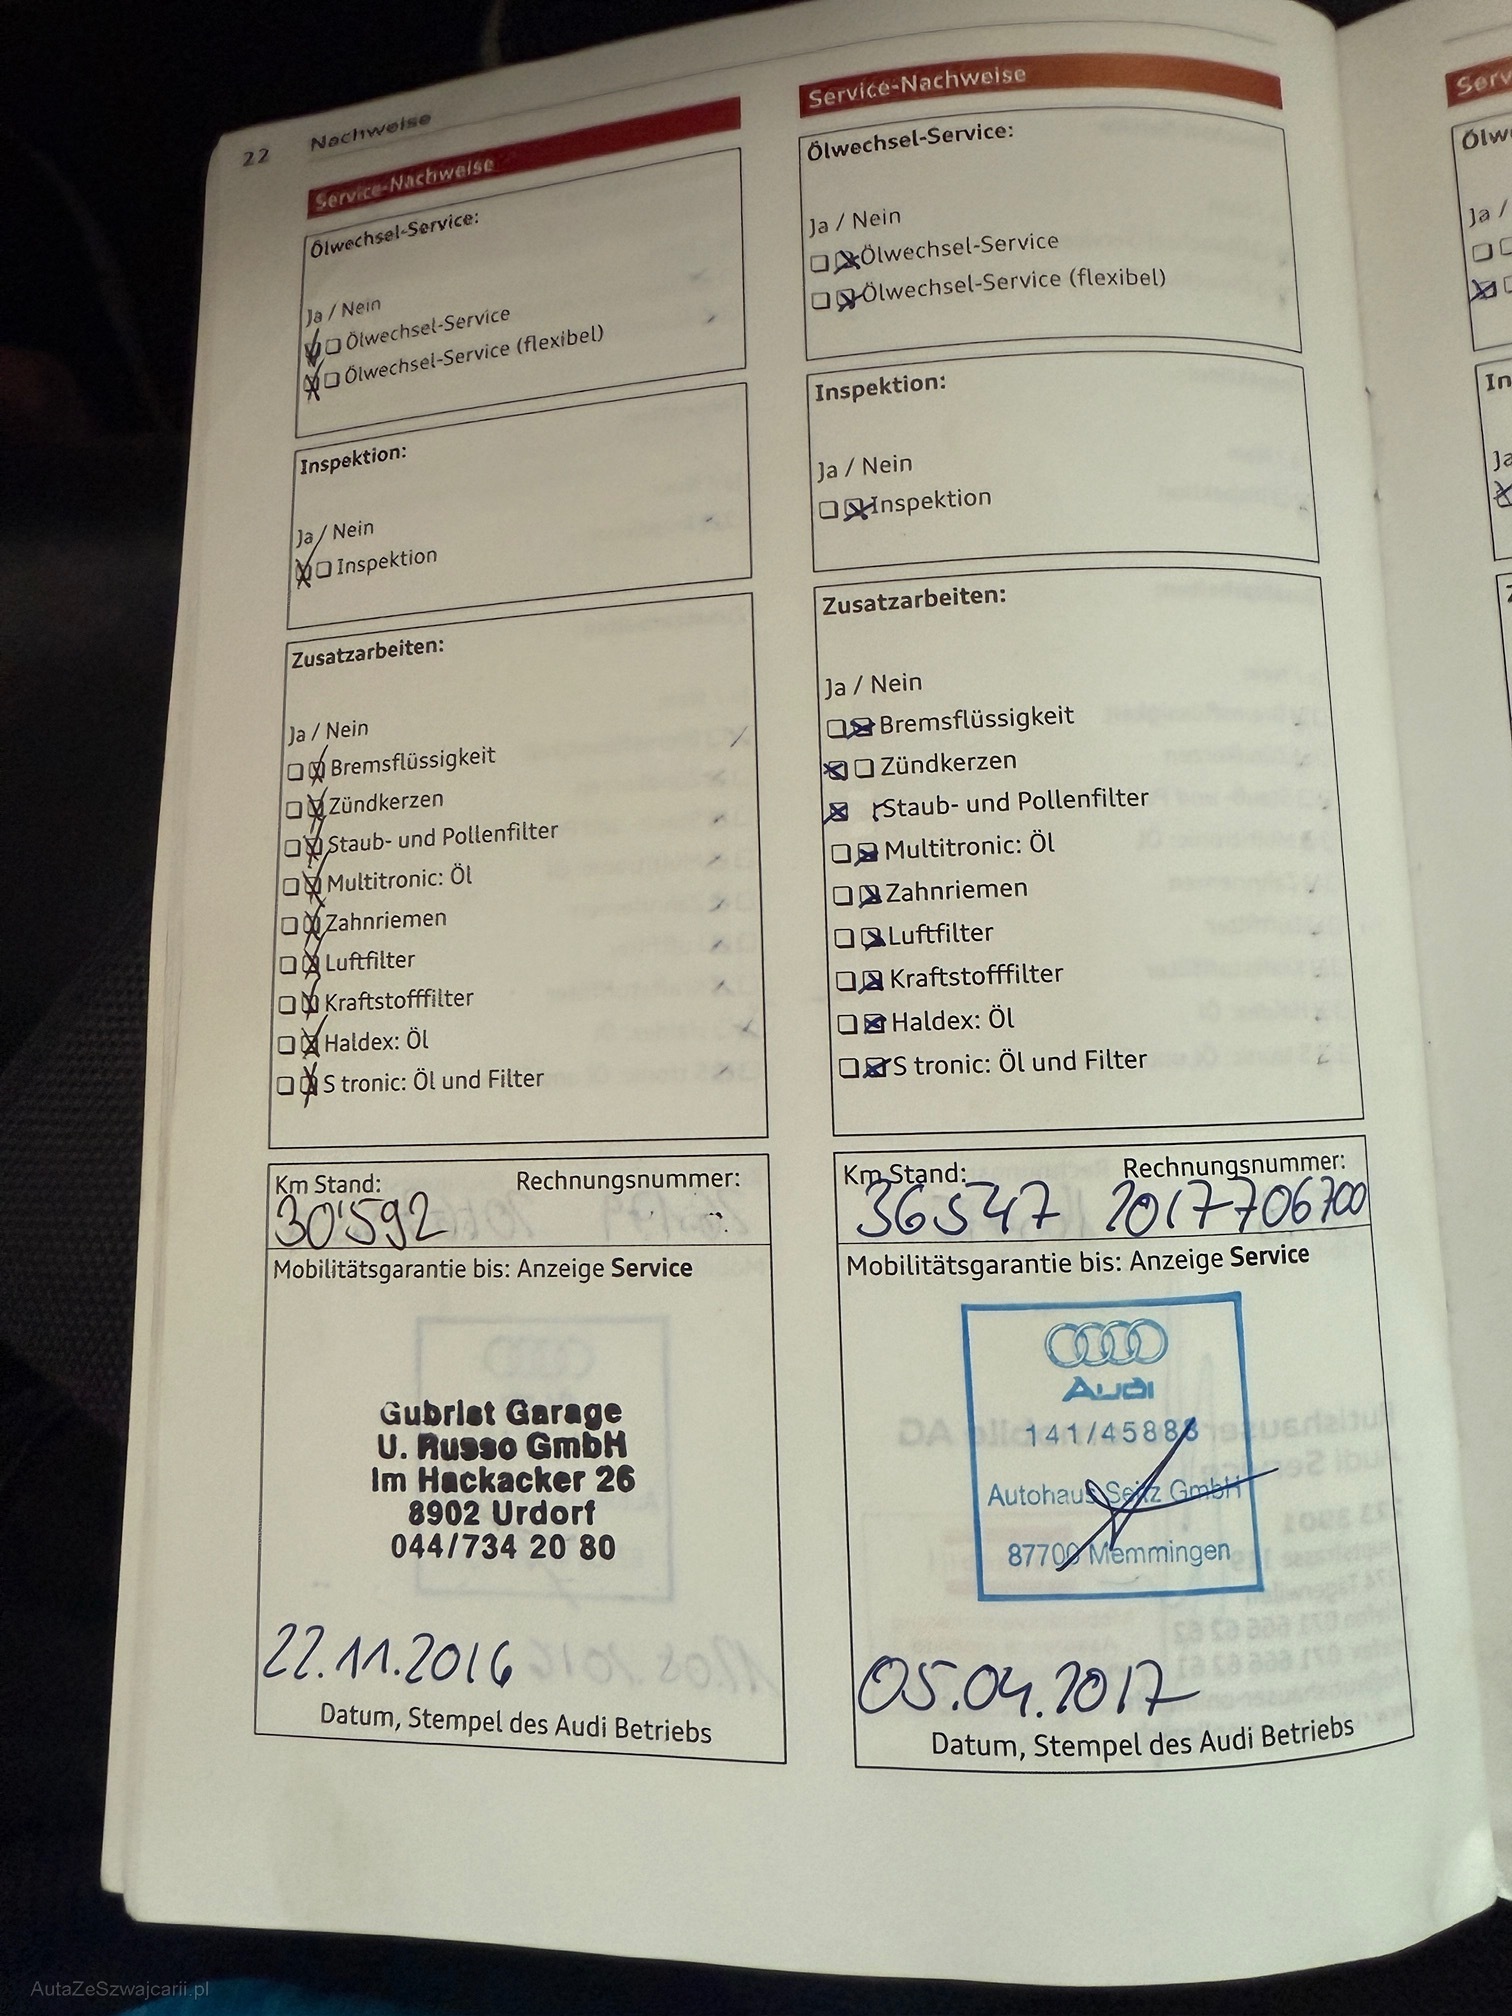 22 Nachweise
Service-Nachweise
Ölwechsel-Service:
Ja / Nein
Ölwechsel-Service
Ölwechsel-Service (flexibel)
Inspektion:
Ja / Nein
Inspektion
Zusatzarbeiten:
Ja / Nein
Bremsflüssigkeit
Zündkerzen
Staub- und Pollenfilter
Multitronic: Öl
Zahnriemen
Luftfilter
Kraftstofffilter
Haldex: Öl
S tronic: Öl und Filter
Km Stand: Rechnungsnummer:
30'592
Mobilitätsgarantie bis: Anzeige Service
Gubrist Garage
U. Russo GmbH
Im Hackacker 26
8902 Urdorf
044/734 20 80
22.11.2016
Datum, Stempel des Audi Betriebs
Service-Nachweise
Ölwechsel-Service:
Ja / Nein
Ölwechsel-Service
Ölwechsel-Service (flexibel)
Inspektion:
Ja / Nein
Inspektion
Zusatzarbeiten:
Ja / Nein
Bremsflüssigkeit
Zündkerzen
Staub- und Pollenfilter
Multitronic: Öl
Zahnriemen
Luftfilter
Kraftstofffilter
Haldex: Öl
S tronic: Öl und Filter
Km Stand: Rechnungsnummer:
36547 2017706700
Mobilitätsgarantie bis: Anzeige Service
Audi
141/45888
Autohaus Seitz GmbH
87700 Memmingen
05.04.2017
Datum, Stempel des Audi Betriebs
AutaZeSzwajcarii.pl